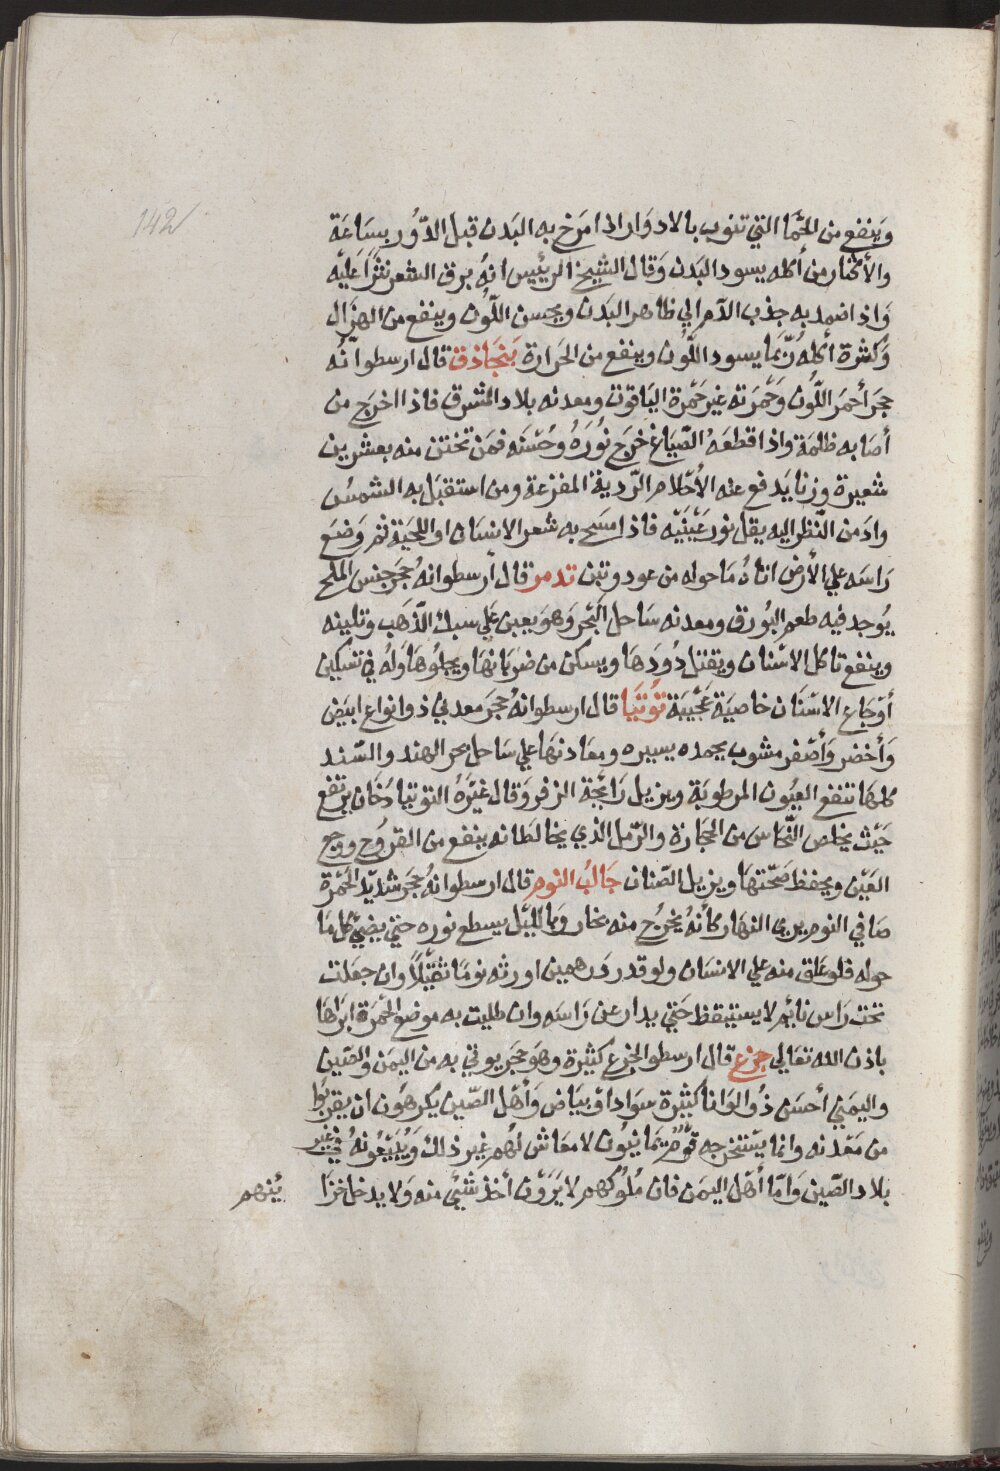 142
وَينفع من الحُمَّا التي تنوب بالادوَار اذا مَرَخ به البَدن قبل الدّور بسَاعَة
والأكثار من أكله يسود البَدن وَقال الشيخ الرييس انهُ برق الشعر نثرًا عَليه
وَاذا ضمد به جذب الدّم الي ظاهر البَدن ويحسن اللّون وينفع من الهزَال
وَكثرة أكله رُبّمَا يسود اللّون وينفع من الحَرارة بَنجَاذق قال ارسطو انّه
حجَر أحمَر اللّون وَحُمرَته غير حُمرة اليَاقوت ومعدنه بلاد المشرق فاذا اخرَج من
أصَابه ظلمَة واذا قطعَهُ الصّيَاغ خرَج نُورَهُ وحُسْنَه فمَن تختمن منه بعشرين
شعيرة وزنا يَدفع عنه الأحْلام الرّدية المفزعة ومن استقبَل به الشمسُ
وادَمن النّظر اليه يقل نور عَيْنيْه فاذا مسَح به شعر الانسَان او اللحيَة ثم وَضع
رَاسَه علي الأرض اتاهُ مَا حوله من عود وتبن تدمر قال أرسطو انهُ حجَر جنس الملح
يُوجد فيه طعم البُورق ومعدنه سَاحل البَحْر وَهوَ يعين عَلي سبك الذّهَب وتليينه
وينفع تاكل الاسْنان ويقتل دُودَهَا ويسكن من ضرَبَانهَا ويجلُوهَا وَلهُ في تسْكين
أوْجَاع الاسْنَان خاصيَة عَجيْبَة تُوتيَا قال ارسطو انهُ حجَر معدني ذو انواع ابيَض
وَأخضر وَأصْفر مشوب بحمده يسيره ومعَادنهَا علي سَاحل بحر الهند والسّند
كلهَا تنفع العيُون المرطوبَة ويزيل رَائِحة الزفر وَقال غيَرهُ التوتيا دُخَان يرتفع
حَيْث يخلص النّحَاس من الحجَارة والرّمل الذي يخالطَا نه ينفع من القروُح ووجع
العَيْن ويحفظ صَحّتهَا ويزيل الصّنان جَالبُ النوم قال ارسطو انهُ حجَر شديّد الحُمْرة
صَافي النوم يري بالنهَار كأنهُ يخرُج منه بخار وَبالليْل يسطع نوره حتي يضيئ كل مَا
حوله فلو علق منه علي الانسَان ولو قدر دَرهمين اورثه نومًا ثقيْلًا وان جعَلت
تحت رَاس نائم لا يستيقظ حَتي يدار عن رَاسَه وان طليت به موضع الحُمَرة ابرَاهَا
باذن الله تعَالي جزع قال ارسطو الجزع كثيرة وهوَ حجَر يوتي به من اليمَن والصّين
واليمَني أحسَن ذُو الوَانا كثيْرة سوَادا وَبيَاض وَأهْل الصّين يكرهُون ان يقربُوا
من مَعْدنه وانما يسْتخرجه قوْمٌ يمَانيُون لا معَاش لهُم غير ذلك وَيُبَيْعُونهُ في غير
بلاد الصّين وَامّا أهْل اليمَن فان مُلوكهم لا يَرَوْن أخذ شيْئ منه وَلا يدخل خزَا
ئِنهم